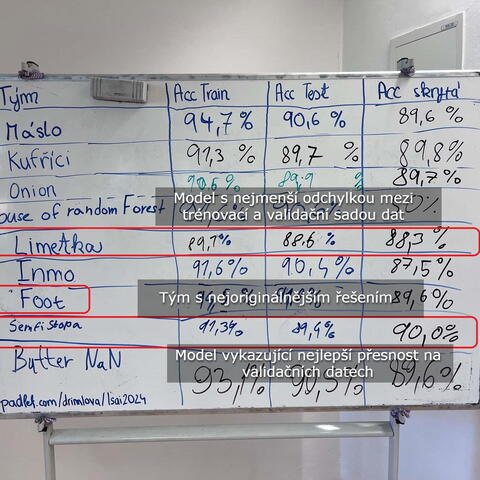 Tým Acc Train Acc Test Acc skrytá
Máslo 94,7% 90,6% 89,6%
Kuřříci 91,3% 89,7% 89,8%
Onion 90,6% 89,7%
Model s nejmenší odchylkou mezi
ouse of random Forest
trénovací a validační sadou dat
Limetka 89,7% 88,6% 88,3%
Inmo 91,6% 90,4% 87,5%
Foot 89,6%
Tým s nejoriginálnějším řešením
Semfistopa 91,3% 89,4% 90,0%
Model vykazující nejlepší přesnost na
validačních datech
Butter NaN 93,1% 90,3% 89,6%
padlet.com/drimlova/lsai2024